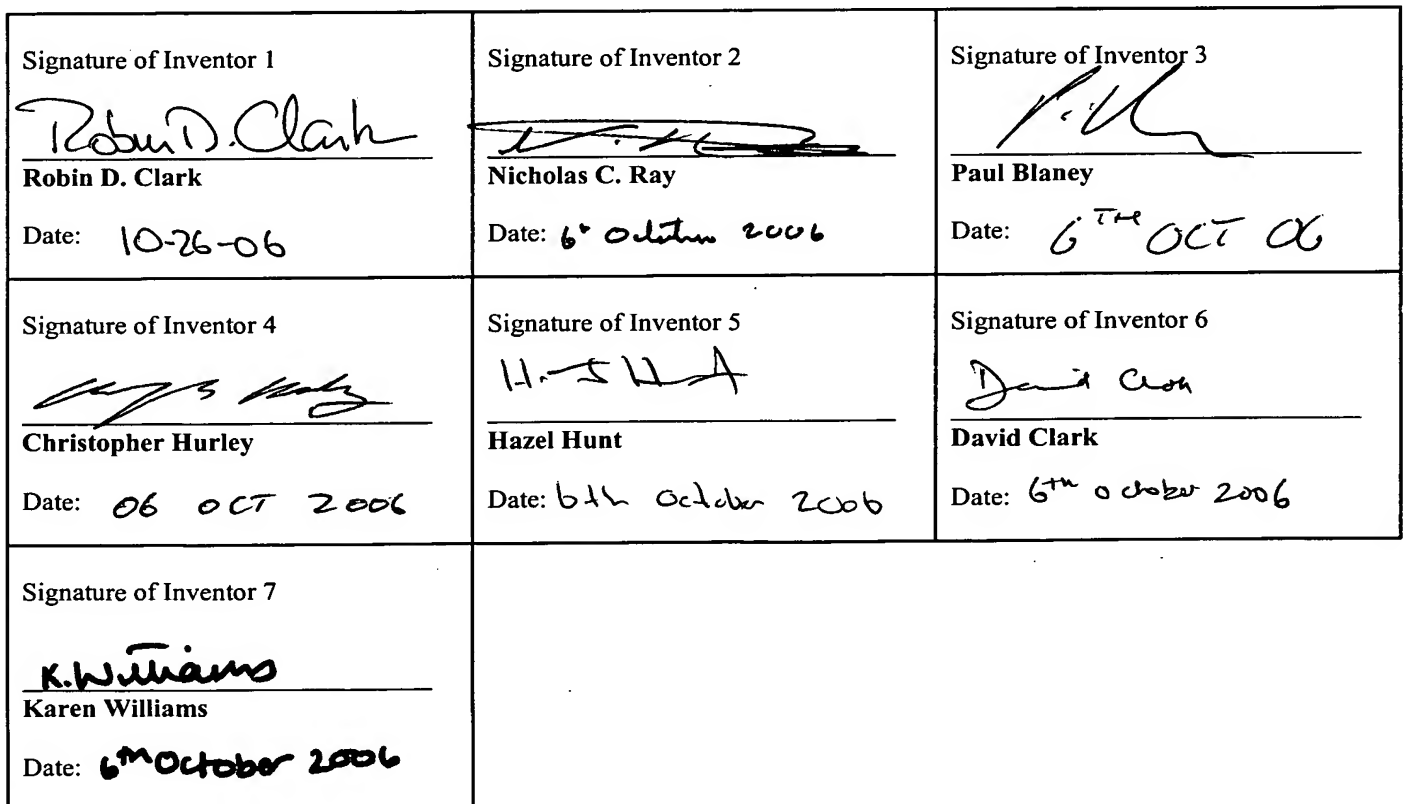 Signature of Inventor 1
Robin D. Clark
Robin D. Clark
Date: 10-26-06
Signature of Inventor 2
Nicholas C. Ray
Date: 6th October 2006
Signature of Inventor 3
Paul Blaney
Date: 6TH OCT 06
Signature of Inventor 4
Christopher Hurley
Date: 06 OCT 2006
Signature of Inventor 5
H. J Hunt
Hazel Hunt
Date: 6th October 2006
Signature of Inventor 6
David Clark
David Clark
Date: 6th October 2006
Signature of Inventor 7
K. Williams
Karen Williams
Date: 6th October 2006